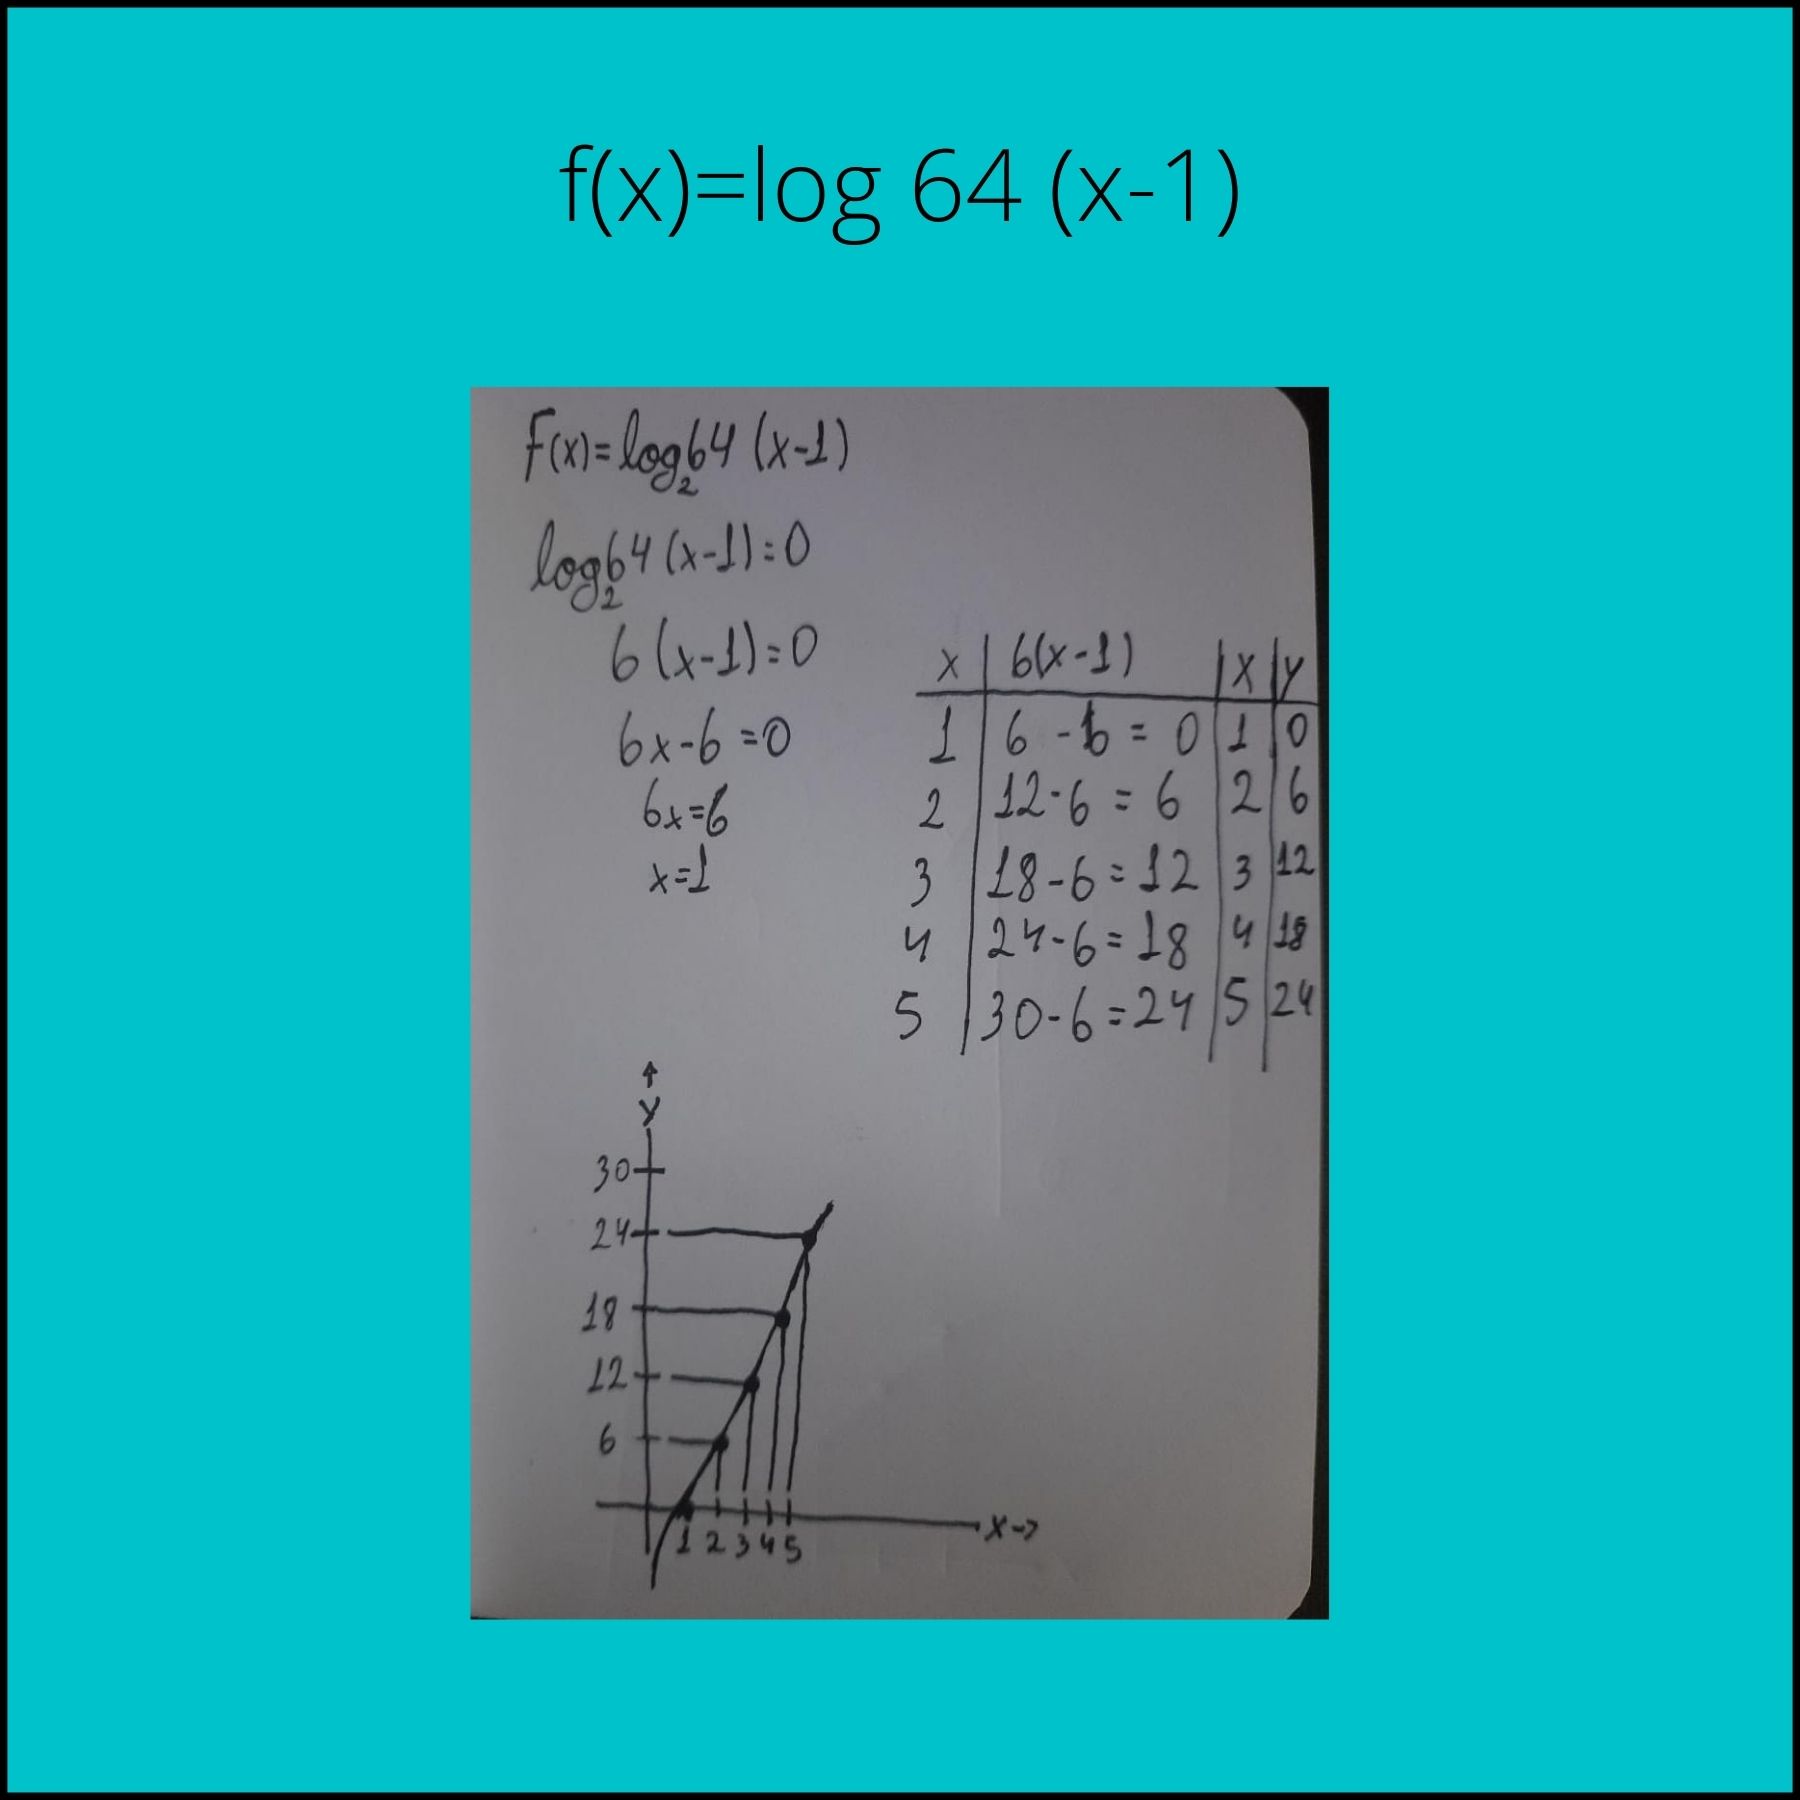 f(x)=log 64 (x-1)
F(x)=log₂64 (x-1)
log₂64 (x-1)=0
6(x-1)=0
6x-6=0
6x=6
x=1
x 6(x-1) x y
1 6-6=0 1 0
2 12-6=6 2 6
3 18-6=12 3 12
4 24-6=18 4 18
5 30-6=24 5 24
y
30
24
18
12
6
1 2 3 4 5
x→